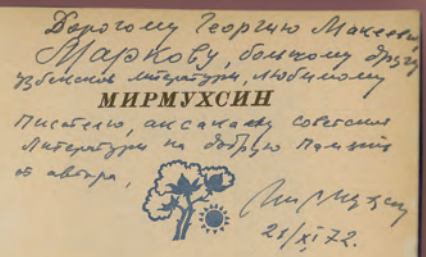 Дорогому Георгию Макеевичу
Маркову, большому другу
узбекской литературы, любимому
МИРМУХСИН
писателю, аксакалу советской
литературы на добрую память
от автора,
Мирмухсин
21/XI 72.